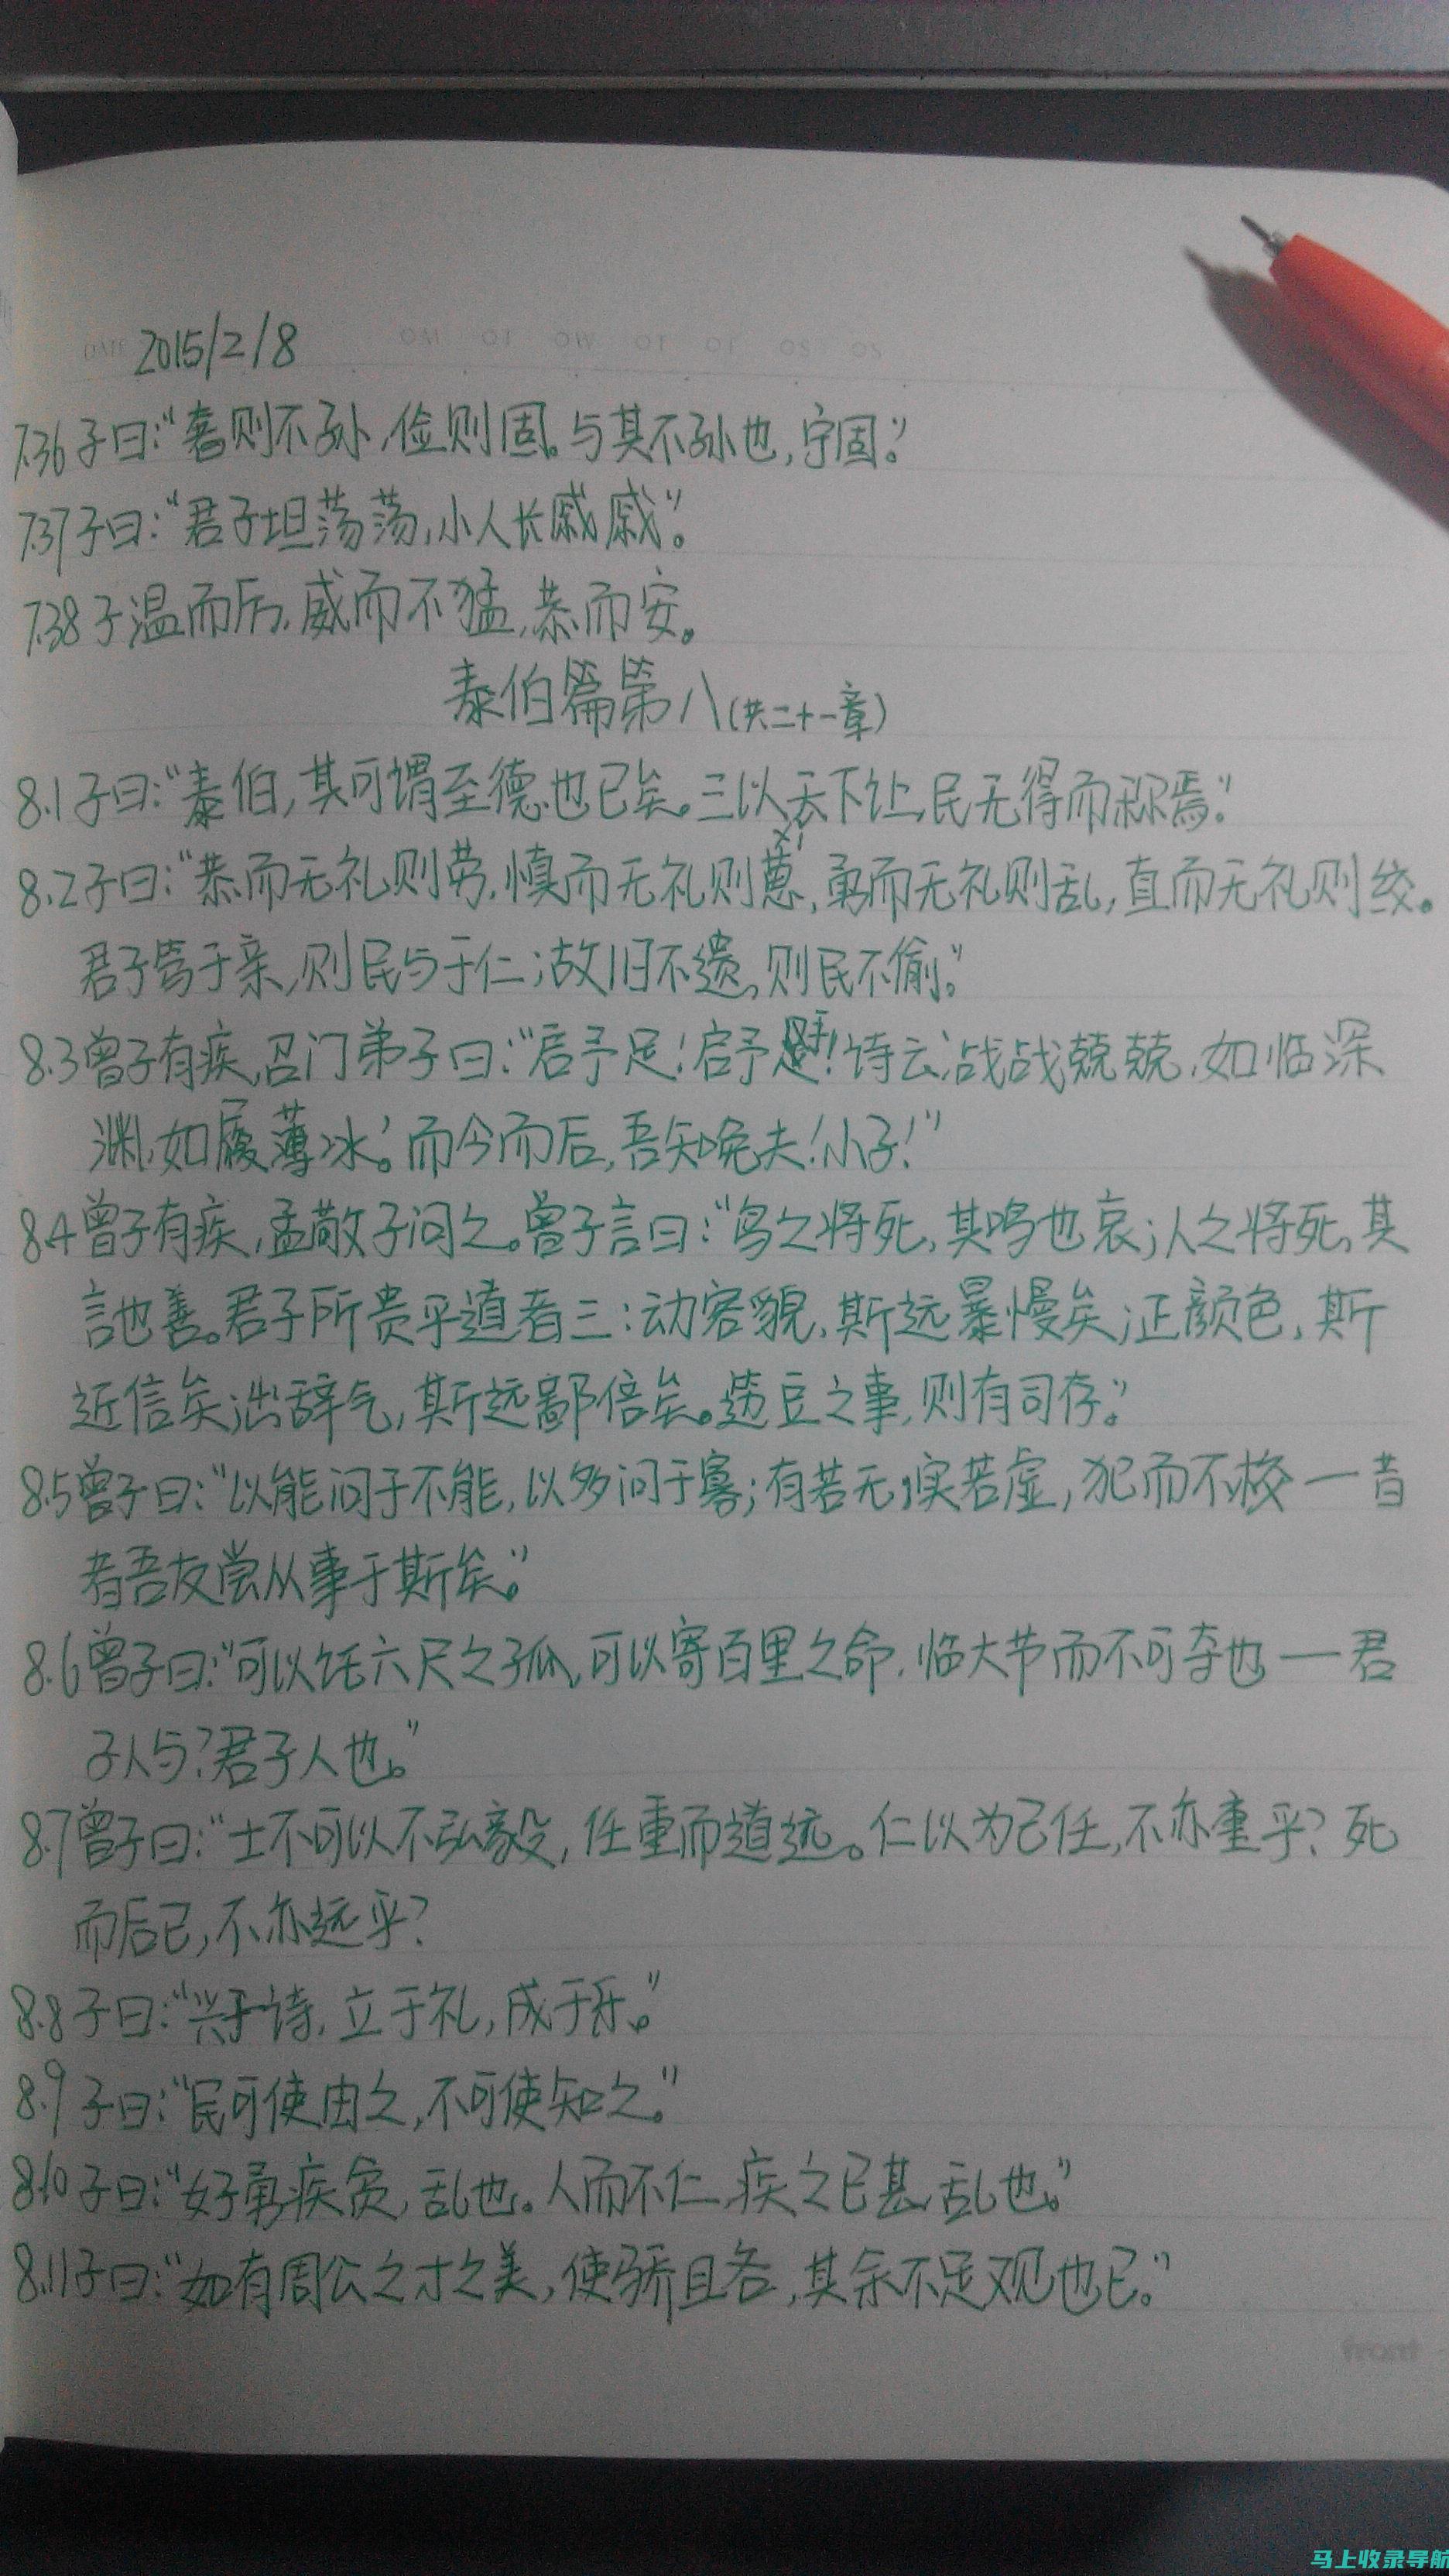 DATE 2015/2/8
7.36 子曰:“奢则不孙,俭则固。与其不孙也,宁固。”
7.37 子曰:“君子坦荡荡,小人长戚戚”。
7.38 子温而厉,威而不猛,恭而安。
泰伯篇第八(共二十一章)
8.1 子曰:“泰伯,其可谓至德也已矣。三以天下让,民无得而称焉。”
xǐ
8.2 子曰:“恭而无礼则劳,慎而无礼则葸,勇而无礼则乱,直而无礼则绞。
君子笃于亲,则民与于仁;故旧不遗,则民不偷。”
8.3 曾子有疾,召门弟子曰:“启予足!启予手!诗云‘战战兢兢,如临深
渊,如履薄冰。’而今而后,吾知免夫!小子!”
8.4 曾子有疾,孟敬子问之。曾子言曰:“鸟之将死,其鸣也哀;人之将死,其
言也善。君子所贵乎道者三:动容貌,斯远暴慢矣;正颜色,斯
近信矣;出辞气,其斯远鄙倍矣。笾豆之事,则有司存。”
8.5 曾子曰:“以能问于不能,以多问于寡;有若无,实若虚,犯而不校——昔
者吾友尝从事于斯矣。”
8.6 曾子曰:“可以托六尺之孤,可以寄百里之命,临大节而不可夺也——君
子人与?君子人也。”
8.7 曾子曰:“士不可以不弘毅,任重而道远。仁以为己任,不亦重乎?死
而后已,不亦远乎?
8.8 子曰:“兴于诗,立于礼,成于乐。”
8.9 子曰:“民可使由之,不可使知之。”
8.10 子曰:“好勇疾贫,乱也。人而不仁,疾之已甚,乱也。”
8.11 子曰:“如有周公之才之美,使骄且吝,其余不足观也已。”
front
马上收录导航